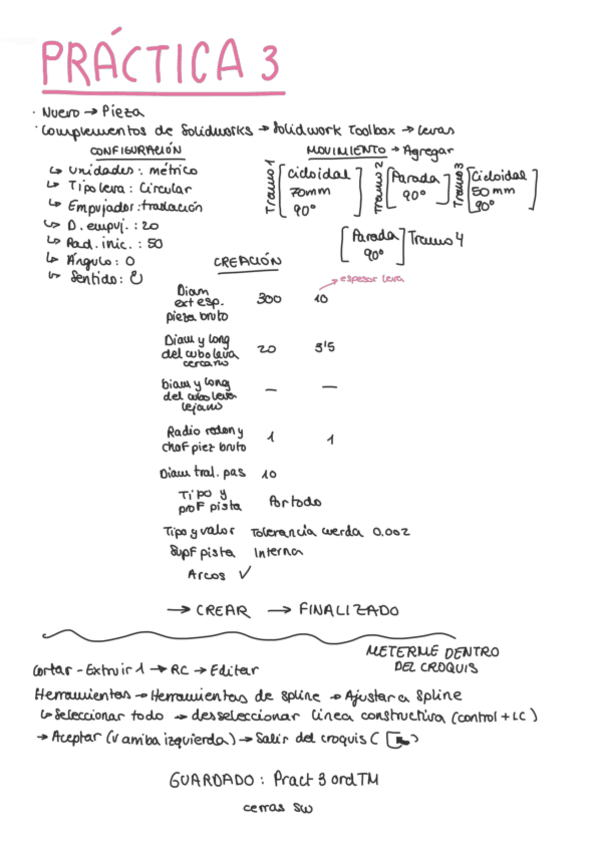 PRÁCTICA 3
· Nuevo → Pieza
· Complementos de Solidworks → Solidwork Toolbox → Levas
CONFIGURACIÓN
↳ Unidades: métrico
↳ Tipo leva: Circular
↳ Empujador: traslación
↳ D. empuj.: 20
↳ Rad. inic.: 50
↳ Ángulo: 0
↳ Sentido: ↻
MOVIMIENTO → Agregar
Tramo 1 [Cicloidal 70mm 90º] Tramo 2 [Parada 90º] Tramo 3 [Cicloidal 50 mm 90º]
[Parada 90º] Tramo 4
CREACIÓN
→ espesor leva
Diam ext esp. pieza bruto 300 10
Diam y long del cubo leva cercano 20 3'5
Diam y long del cubo leva lejano — —
Radio redon y chaf piez bruto 1 1
Diam tral. pas 10
Tipo y prof pista Por todo
Tipo y valor Tolerancia cuerda 0.002
Supf pista Interna
Arcos ✓
→ CREAR → FINALIZADO
METERME DENTRO DEL CROQUIS
Cortar-Extruir 1 → RC → Editar
Herramientas → Herramientas de spline → Ajustar a Spline
↳ Seleccionar todo → desseleccionar linea constructiva (control + LC)
→ Aceptar (V arriba izquierda) → Salir del croquis ( )
GUARDADO: Pract 3 ord TM
cerras SW